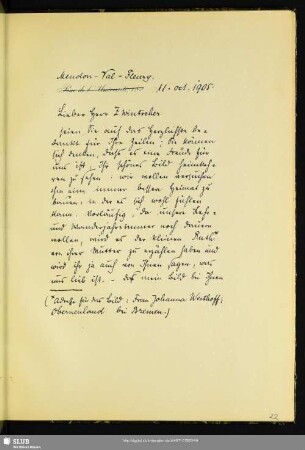 Meudon-Val-Fleury
11. oct. 1905
Lieber Herr Zwintscher
seien Sie auf das Herzlichste be-
dankt für Ihre Zeilen: Sie können
sich denken, daß es eine Freude für
uns ist, Ihr schönes Bild heimkeh-
ren zu sehen: wir wollen versuchen
ihm eine immer bessere Heimat zu
bauen, in der es sich wohl fühlen
kann. Vorläufig, da unsere Lehr-
und Wanderjahre immer noch dauern
wollen, wird es der kleinen Ruth
von ihrer Mutter zu erzählen haben und
wird ihr ja auch von Ihnen sagen, was
uns lieb ist. - daß mein Bild bei Ihnen
(* Adresse für das Bild: Frau Johanna Westhoff,
Oberneuland bei Bremen.)
22
SLUB
Wir führen Wissen.